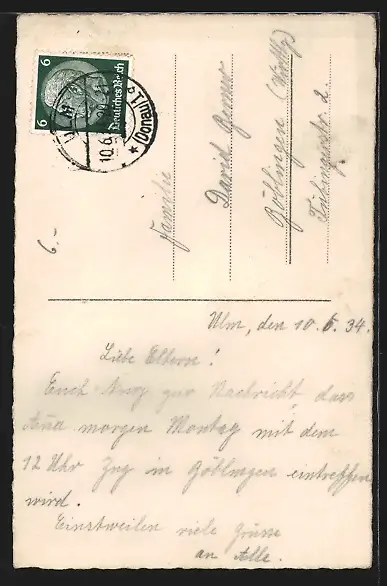 6 6
Deutsches Reich
(Donau)
10.6
Familie
David
Böblingen (Württbg)
Tübingerstr. 2.
6.-
Ulm, den 10. 6. 34.
Liebe Eltern!
Euch kurz zur Nachricht, dass
morgen Montag mit dem
12 Uhr Zug in Göblingen eintreffen
wird.
Einstweilen viele Grüsse
an Alle.